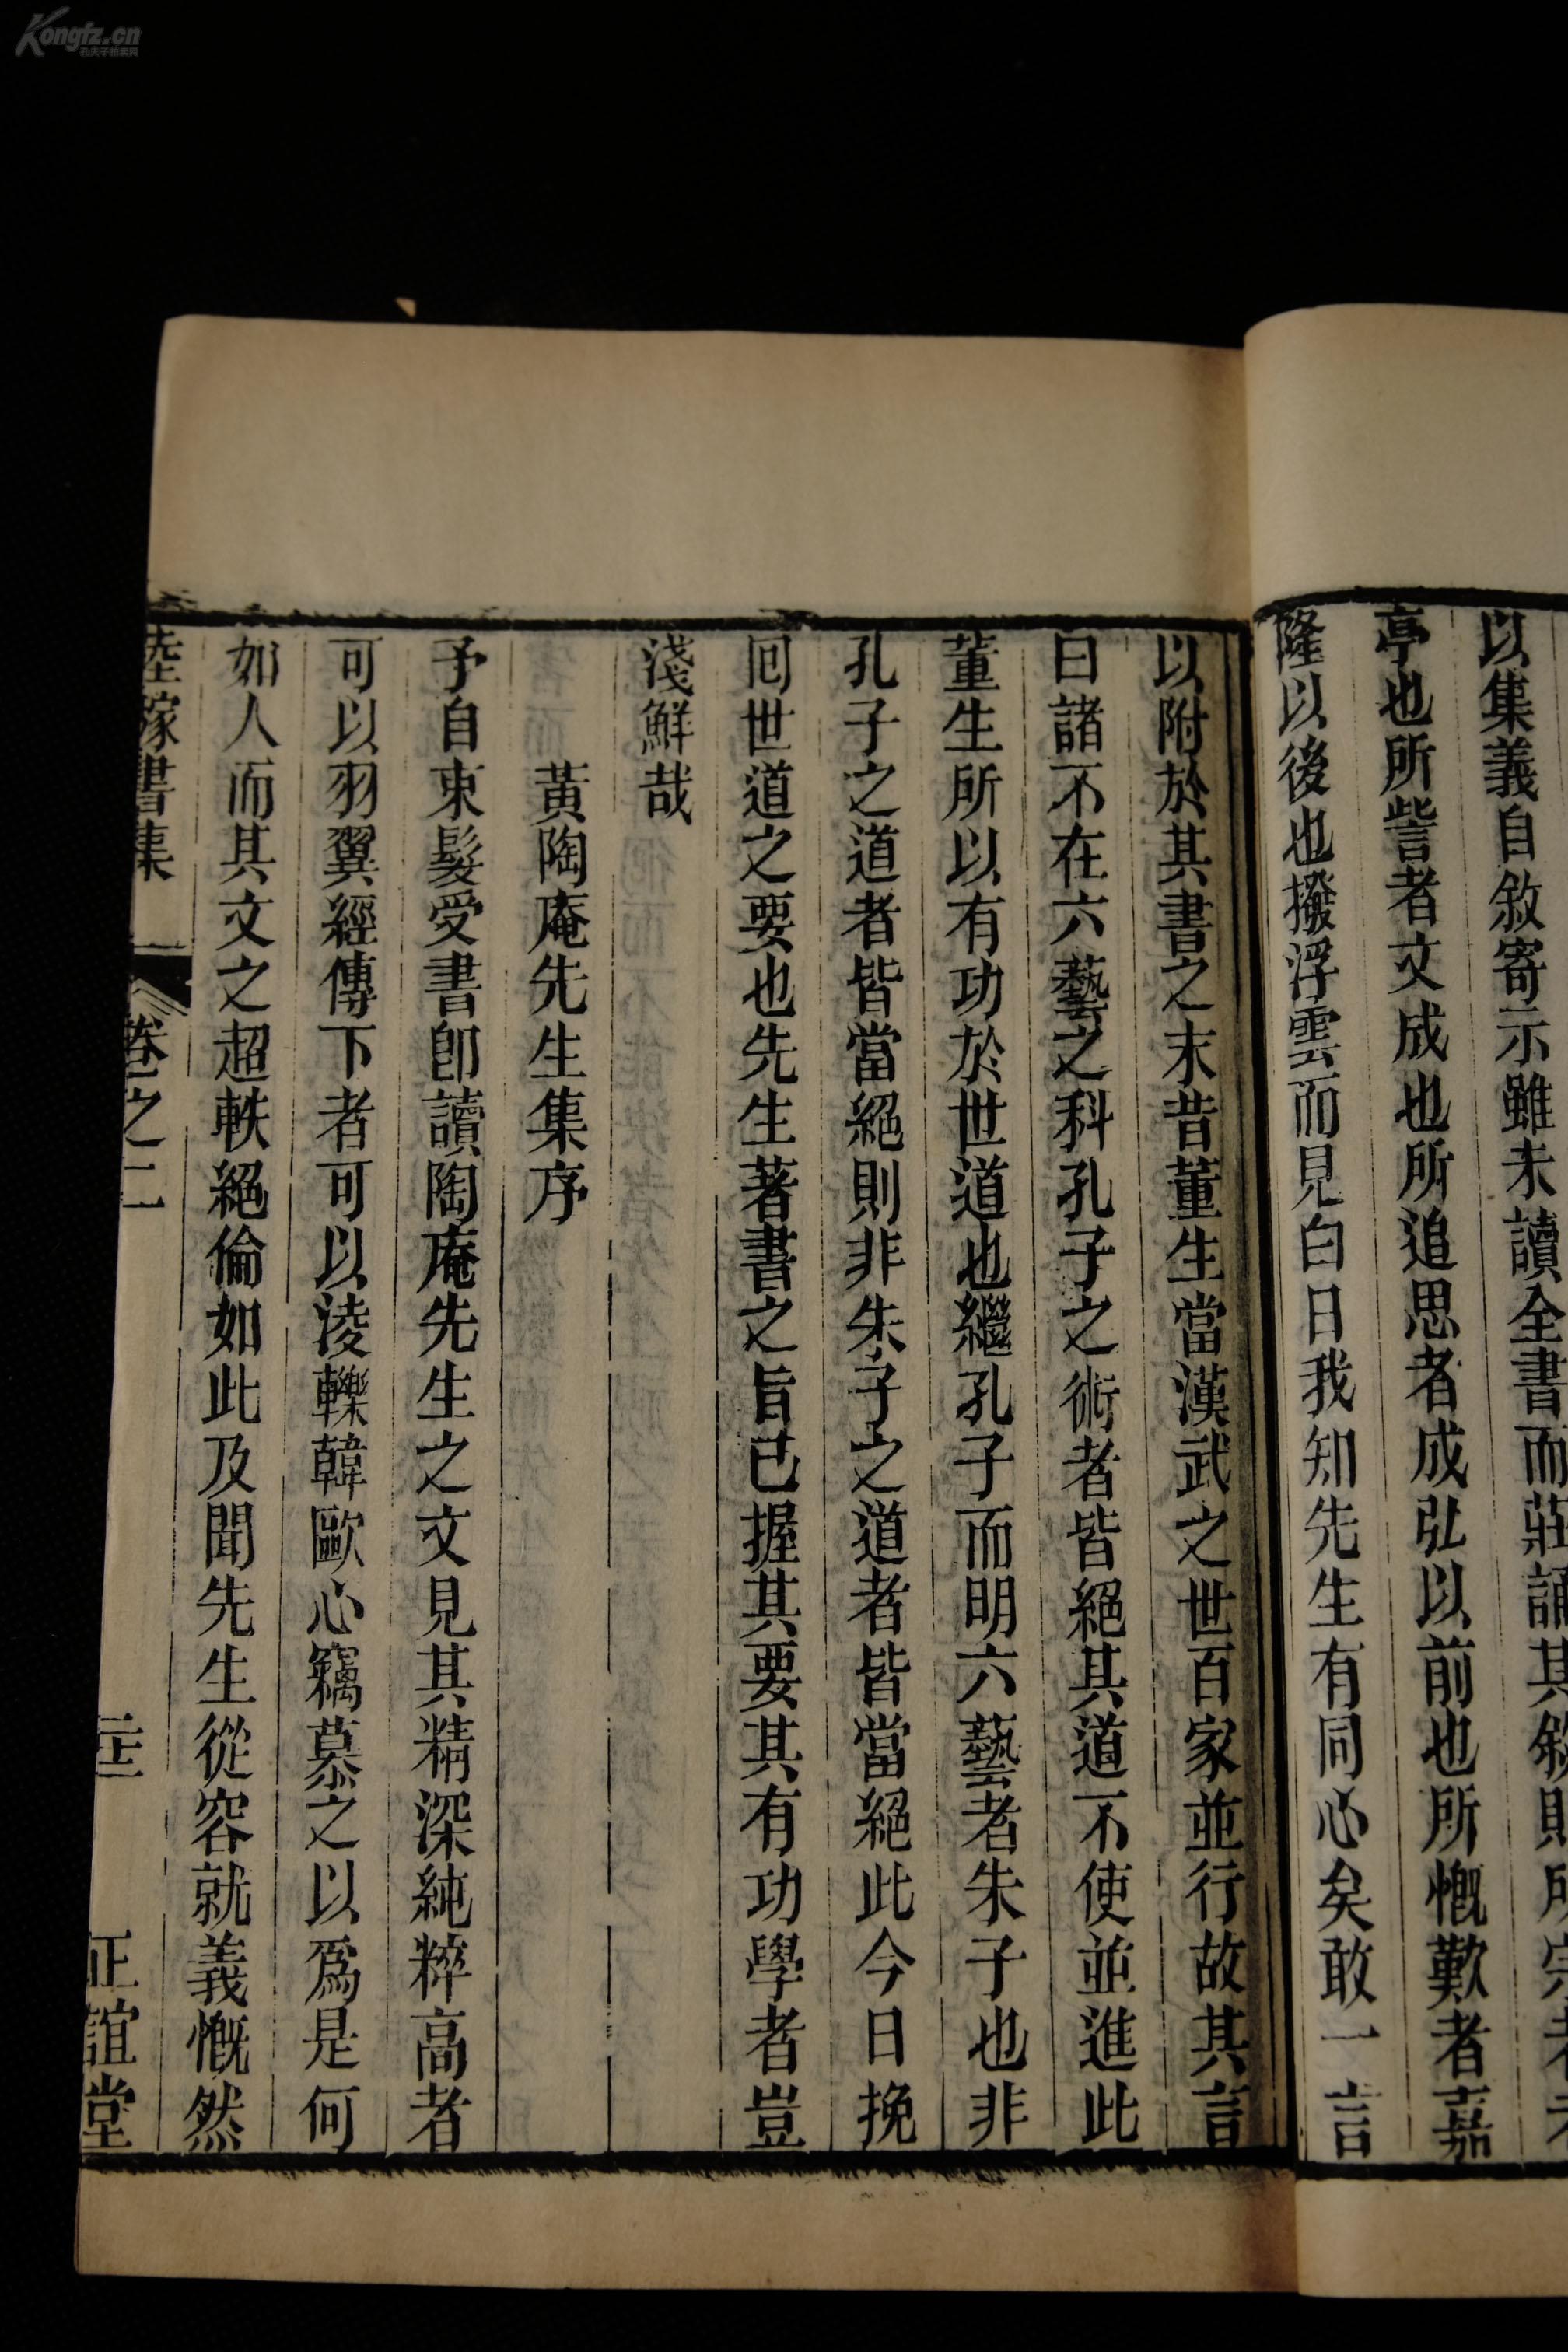 Kongfz.cn
孔夫子拍卖网
以集義自敘寄示雖未讀全書而莊誦其敘則所宗者
亭也所訾者文成也所追思者成弘以前也所慨歎者嘉
隆以後也撥浮雲而見白日我知先生有同心矣敢一言
以附於其書之末昔董生當漢武之世百家並行故其言
曰諸不在六藝之科孔子之術者皆絕其道不使並進此
董生所以有功於世道也繼孔子而明六藝者朱子也非
孔子之道者皆當絕則非朱子之道者皆當絕此今日挽
囘世道之要也先生著書之旨已握其要其有功學者豈
淺鮮哉
黃陶庵先生集序
予自束髮受書卽讀陶庵先生之文見其精深純粹高者
可以羽翼經傳下者可以淩轢韓歐心竊慕之以爲是何
如人而其文之超軼絕倫如此及聞先生從容就義慨然
陸稼書集 卷之二 正誼堂